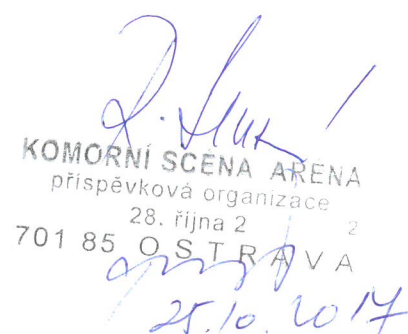 KOMORNÍ SCÉNA ARÉNA
příspěvková organizace
28. října 2 2
701 85 OSTRAVA
25.10.2017